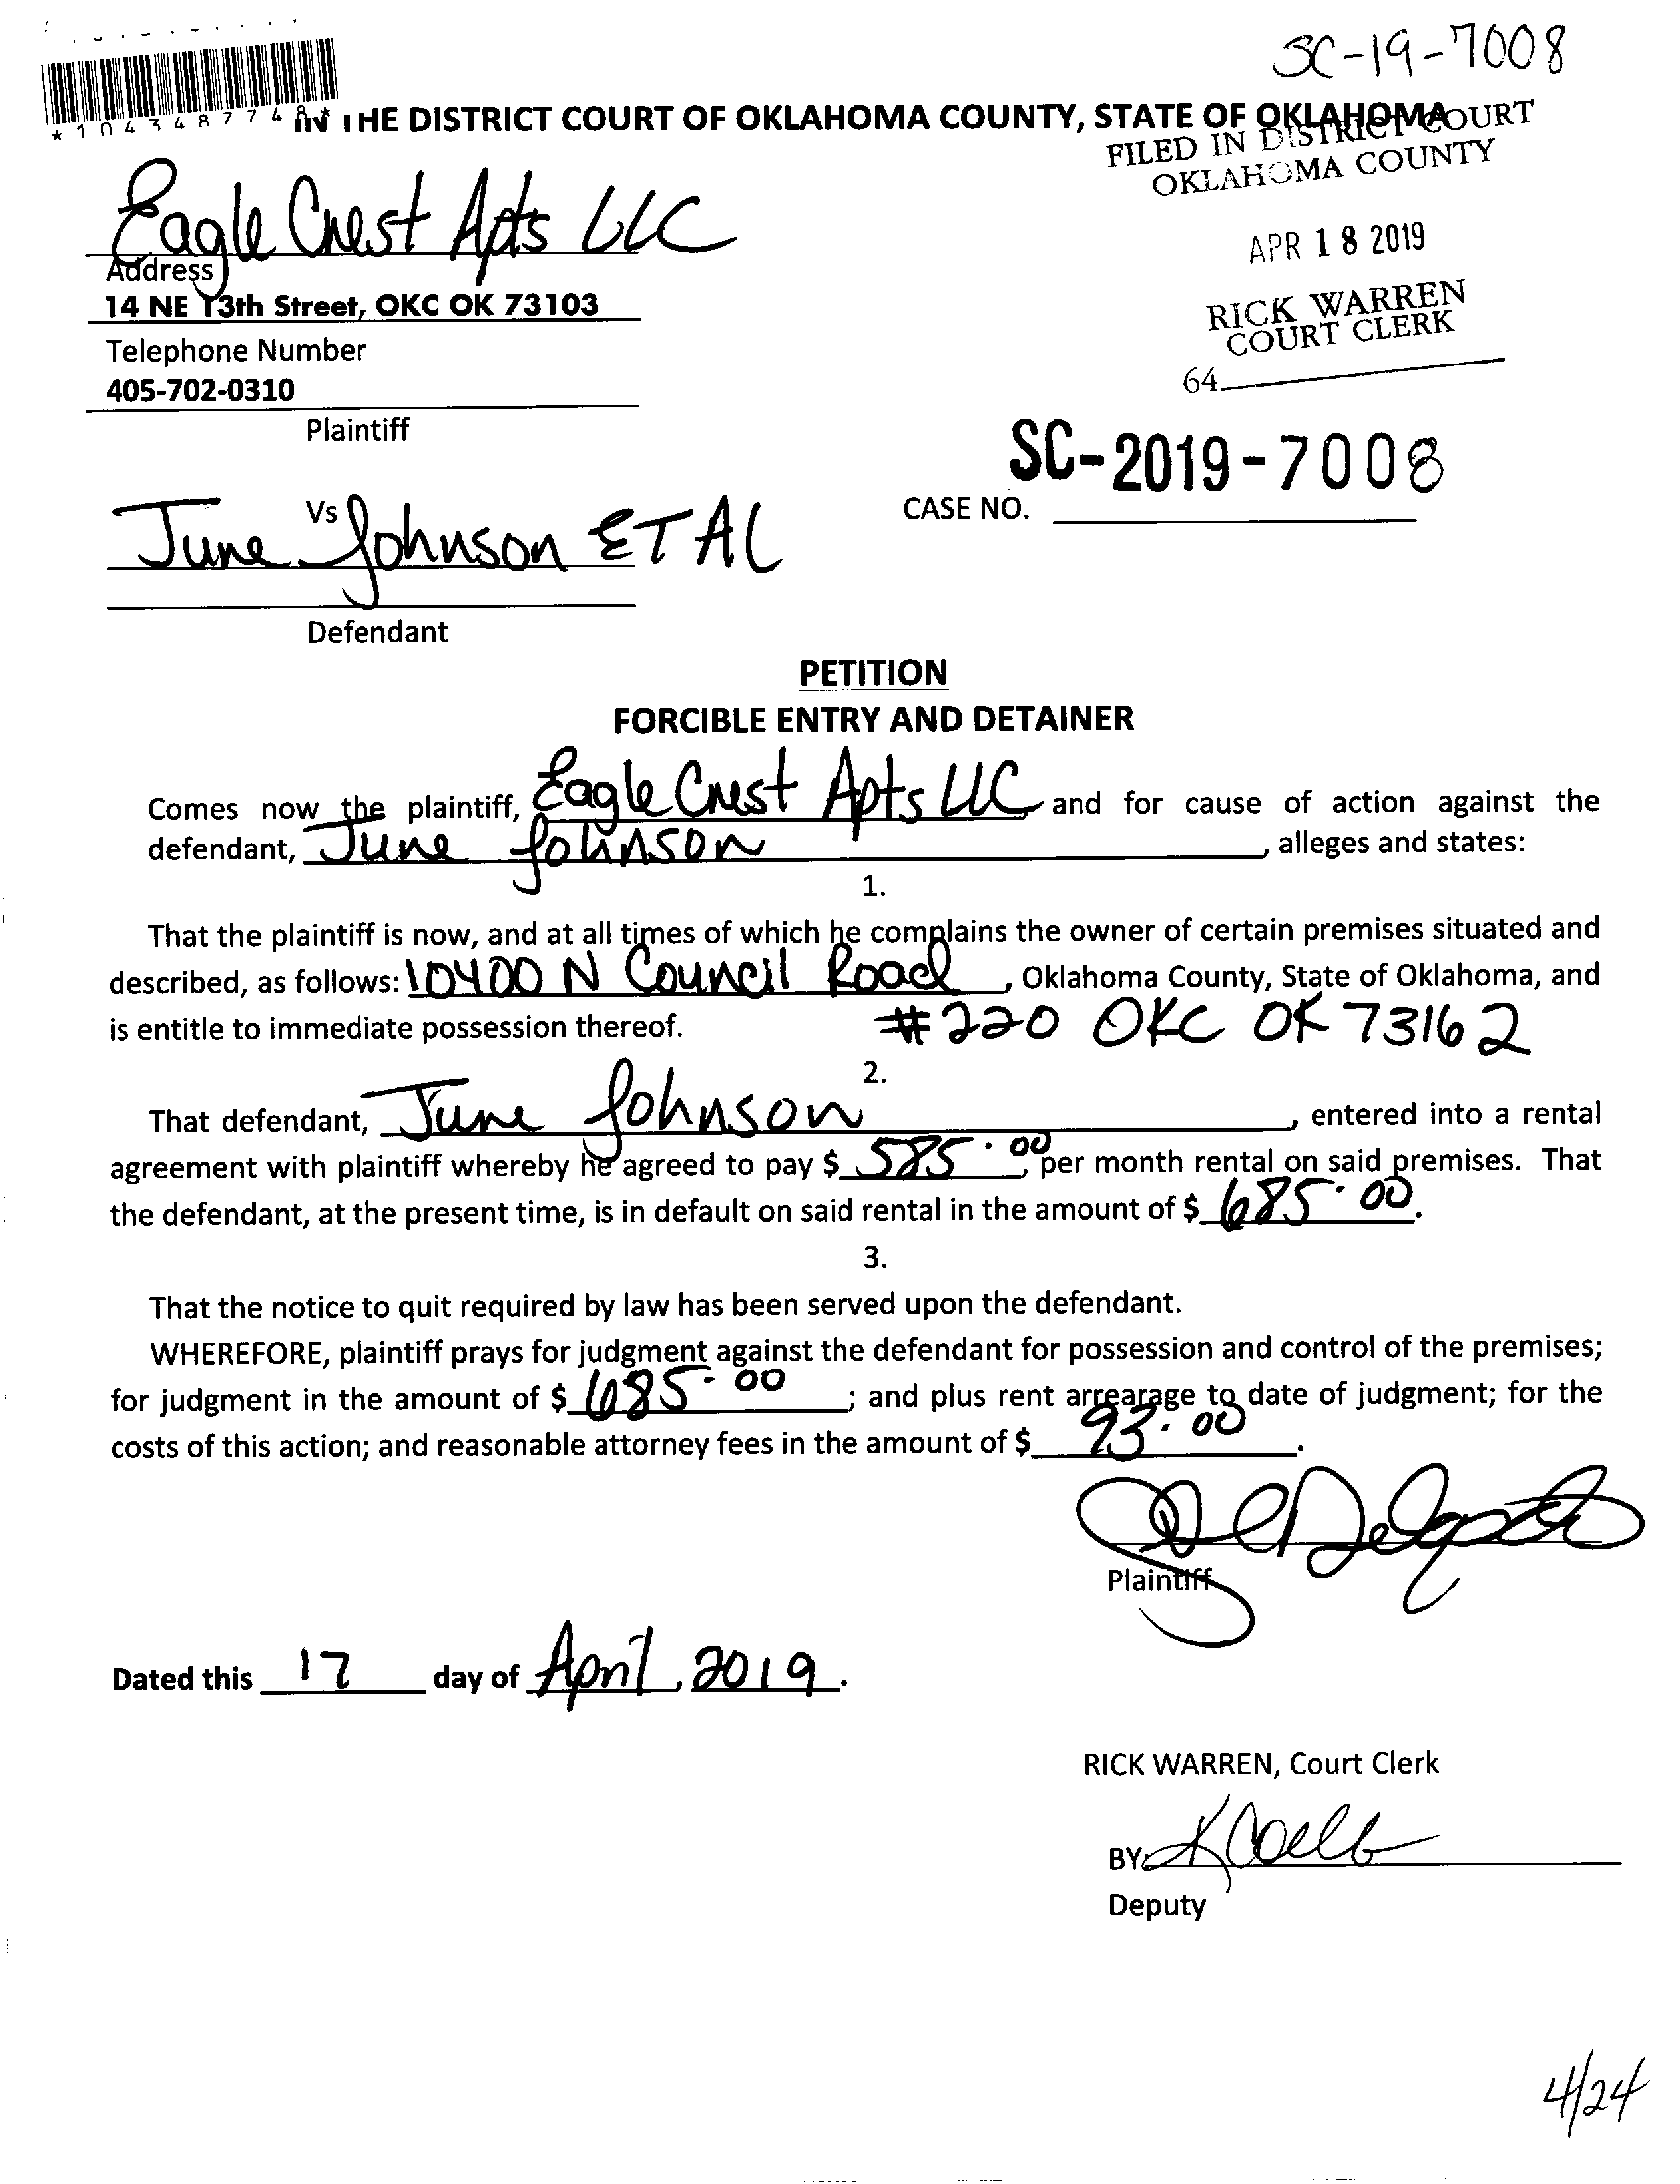 SC-19-7008
*104348774
IN THE DISTRICT COURT OF OKLAHOMA COUNTY, STATE OF OKLAHOMA
FILED IN DISTRICT COURT
OKLAHOMA COUNTY
Eagle Crest Apts LLC
APR 18 2019
Address
14 NE 13th Street, OKC OK 73103
RICK WARREN
COURT CLERK
Telephone Number
64
405-702-0310
Plaintiff
SC-2019-7008
CASE NO.
Vs
June Johnson ETAL
Defendant
PETITION
FORCIBLE ENTRY AND DETAINER
Comes now the plaintiff, Eagle Crest Apts LLC and for cause of action against the
defendant, June Johnson, alleges and states:
1.
That the plaintiff is now, and at all times of which he complains the owner of certain premises situated and
described, as follows: 10400 N Council Road, Oklahoma County, State of Oklahoma, and
is entitle to immediate possession thereof. #220 OKC OK 73162
2.
That defendant, June Johnson, entered into a rental
agreement with plaintiff whereby he agreed to pay $ 585.00, per month rental on said premises. That
the defendant, at the present time, is in default on said rental in the amount of $ 685.00.
3.
That the notice to quit required by law has been served upon the defendant.
WHEREFORE, plaintiff prays for judgment against the defendant for possession and control of the premises;
for judgment in the amount of $ 685.00; and plus rent arrearage to date of judgment; for the
costs of this action; and reasonable attorney fees in the amount of $ 93.00.
Plaintiff
Dated this 17 day of April, 2019.
RICK WARREN, Court Clerk
BY:
Deputy
4/24